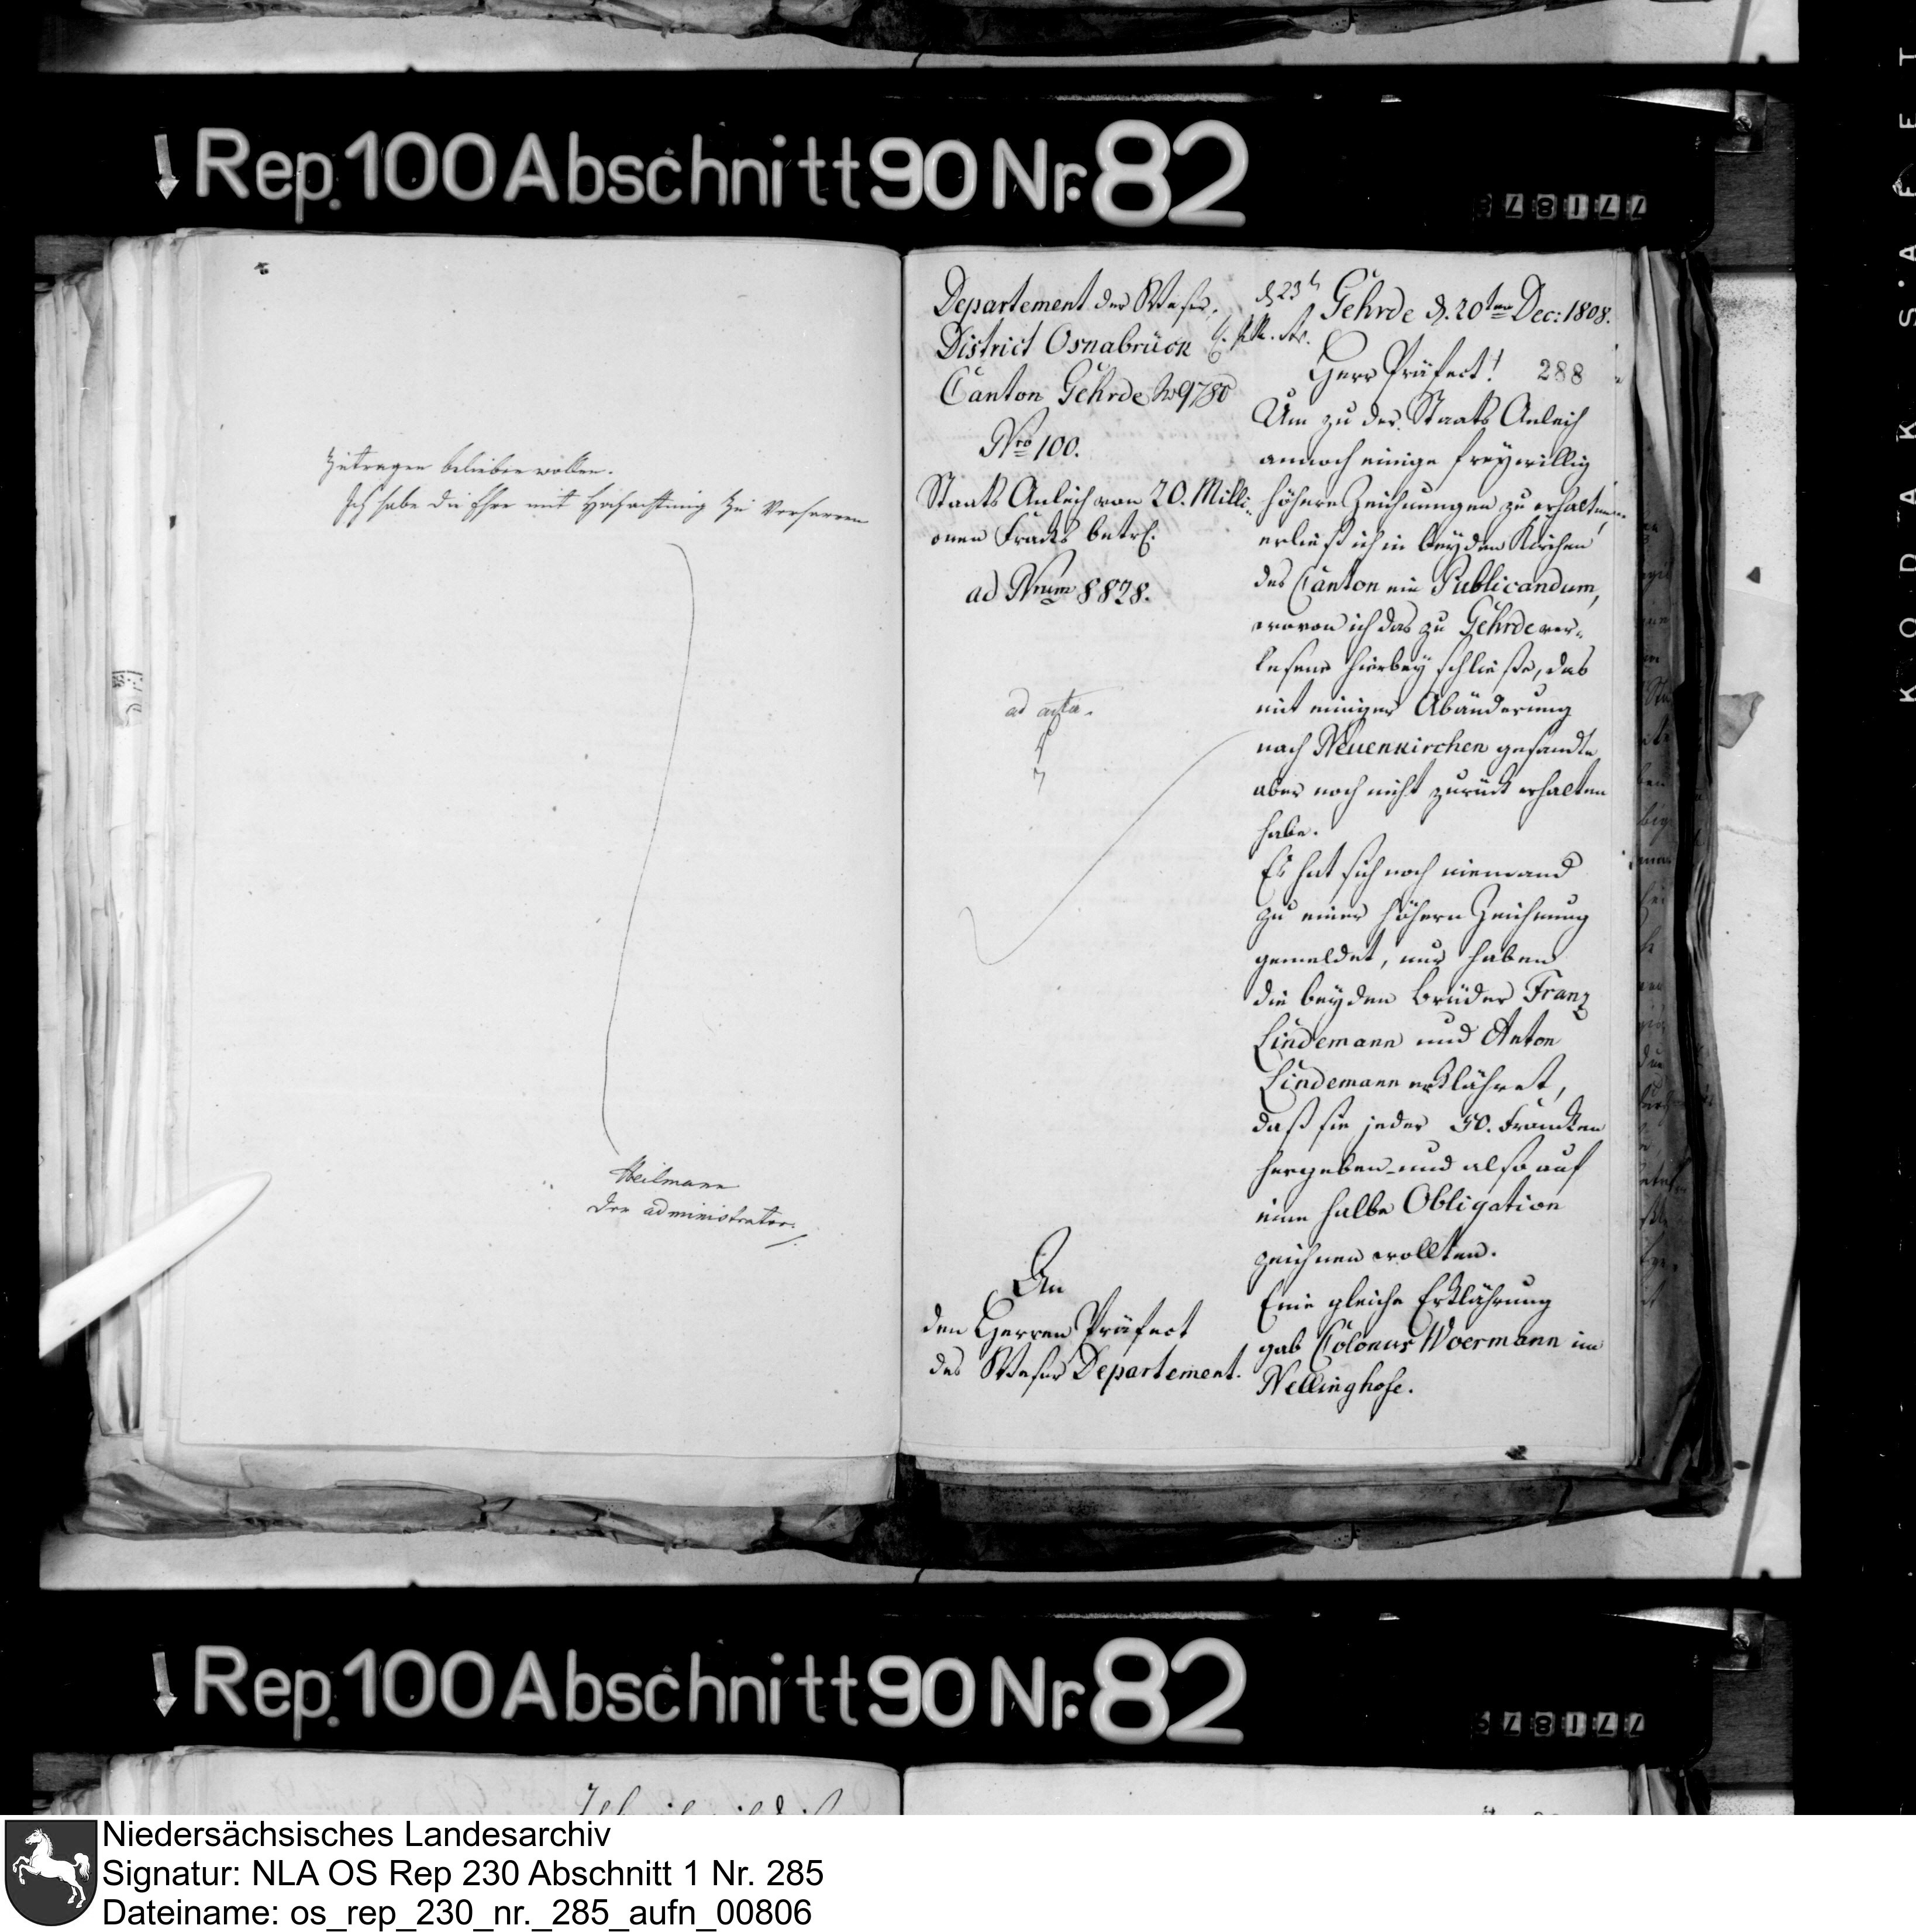 Rep. 100 Abschnitt 90 Nr. 82
771878
zutragen belieben wollen.
Ich habe die Ehre mit Hochachtung zu Verharren
Heilmann
der administrator.
Departement der Weser,
District Osnabrück
Canton Gehrde No 9780
Nro 100.
Staats Anleih von 20. Milli-
onen Francs betrf.
ad Nrum 8828.
ad acta.
An
den Herren Präfect
des Weser Departement.
Gehrde d. 20ten Dec: 1808.
Herr Präfect! 288
Um zu der Staats Anleih
annoch einige freywillig
höhere Zeichnungen zu erhalten,
erließ ich in beyden Kirchen
des Canton ein Publicandum,
wovon ich das zu Gehrde ver-
lesene hierbey schließe, das
mit einiger Abänderung
nach Neuenkirchen gesandte
aber noch nicht zurück erhalten
habe.
Es hat sich noch niemand
zu einer höhern Zeichnung
gemeldet, nur haben
die beyden Brüder Franz
Lindemann und Anton
Lindemann erklähret,
daß sie jeder 50. Francken
hergeben und also auf
eine halbe Obligation
zeichnen wollten.
Eine gleiche Erklährung
gab Colonus Woermann im
Nellinghofe.
KODAK SAFET
Rep. 100 Abschnitt 90 Nr. 82
771878
Niedersächsisches Landesarchiv
Signatur: NLA OS Rep 230 Abschnitt 1 Nr. 285
Dateiname: os_rep_230_nr._285_aufn_00806